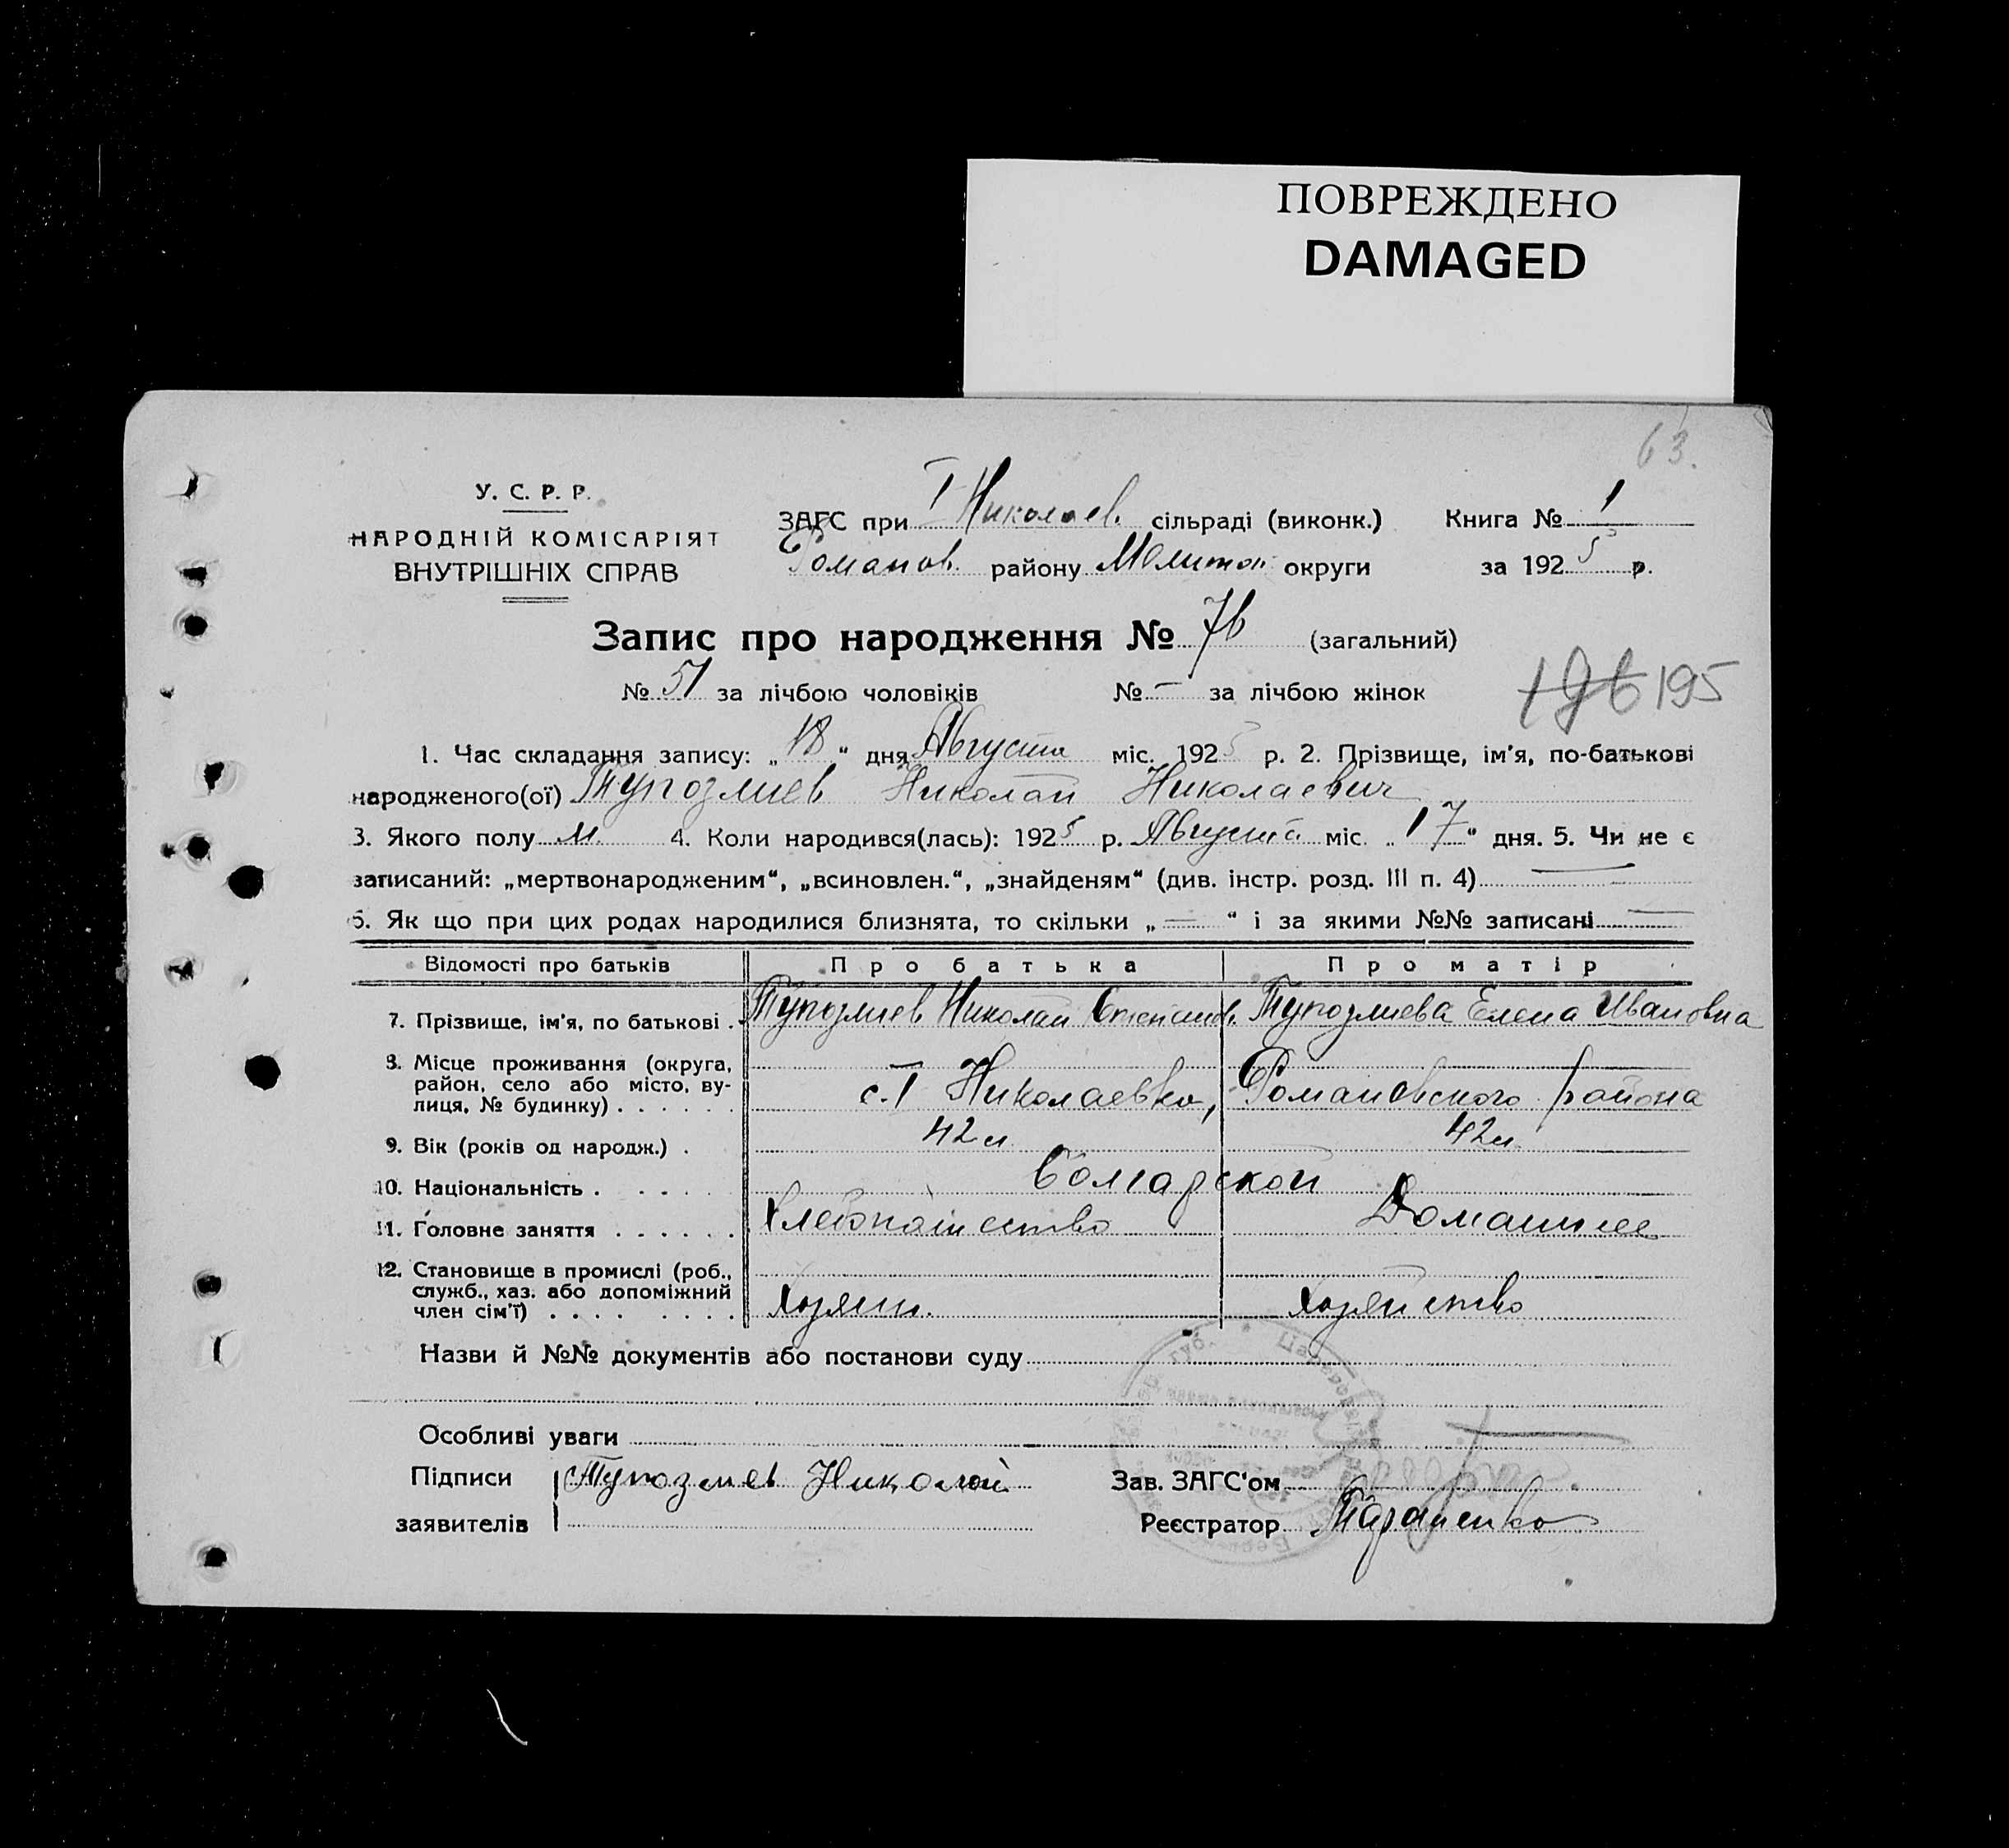 ПОВРЕЖДЕНО
DAMAGED
63.
У. С. Р. Р.
НАРОДНІЙ КОМІСАРІЯТ
ВНУТРІШНІХ СПРАВ
ЗАГС при I Николаев. сільраді (виконк.) Книга № 1
Романов. району Мелитоп округи за 1925 р.
Запис про народження № 76 (загальний)
№ 51 за лічбою чоловіків № — за лічбою жінок
196 195
1. Час складання запису: „18“ дня Августа міс. 1925 р. 2. Прізвище, ім'я, по-батькові
народженого(ої) Тупозлиев Николай Николаевич
3. Якого полу м. 4. Коли народився(лась): 1925 р. Августа міс. „17“ дня. 5. Чи не є
записаний: „мертвонародженим“, „всиновлен.“, „знайденям“ (див. інстр. розд. III п. 4) —
6. Як що при цих родах народилися близнята, то скільки „—“ і за якими №№ записані —
Відомості про батьків Про батька Про матір
7. Прізвище, ім'я, по батькові . Тупозлиев Николай Степанов. Тупозлиева Елена Ивановна
8. Місце проживання (округа,
район, село або місто, ву-
лиця, № будинку) . . . . . . с. I Николаевка, Романовского района
9. Вік (років од народж.) . 42 л 42 л.
10. Національність . . . . . Болгарской
11. Головне заняття . . . . . . Хлебопашество Домашнее
12. Становище в промислі (роб.,
служб., хаз. або допоміжний
член сім'ї) . . . . . . . . Хозяин. Хозяйство
Назви й №№ документів або постанови суду
Особливі уваги
Підписи Тупозлиев Николай Зав. ЗАГС'ом
заявителів Реєстратор Тараненко